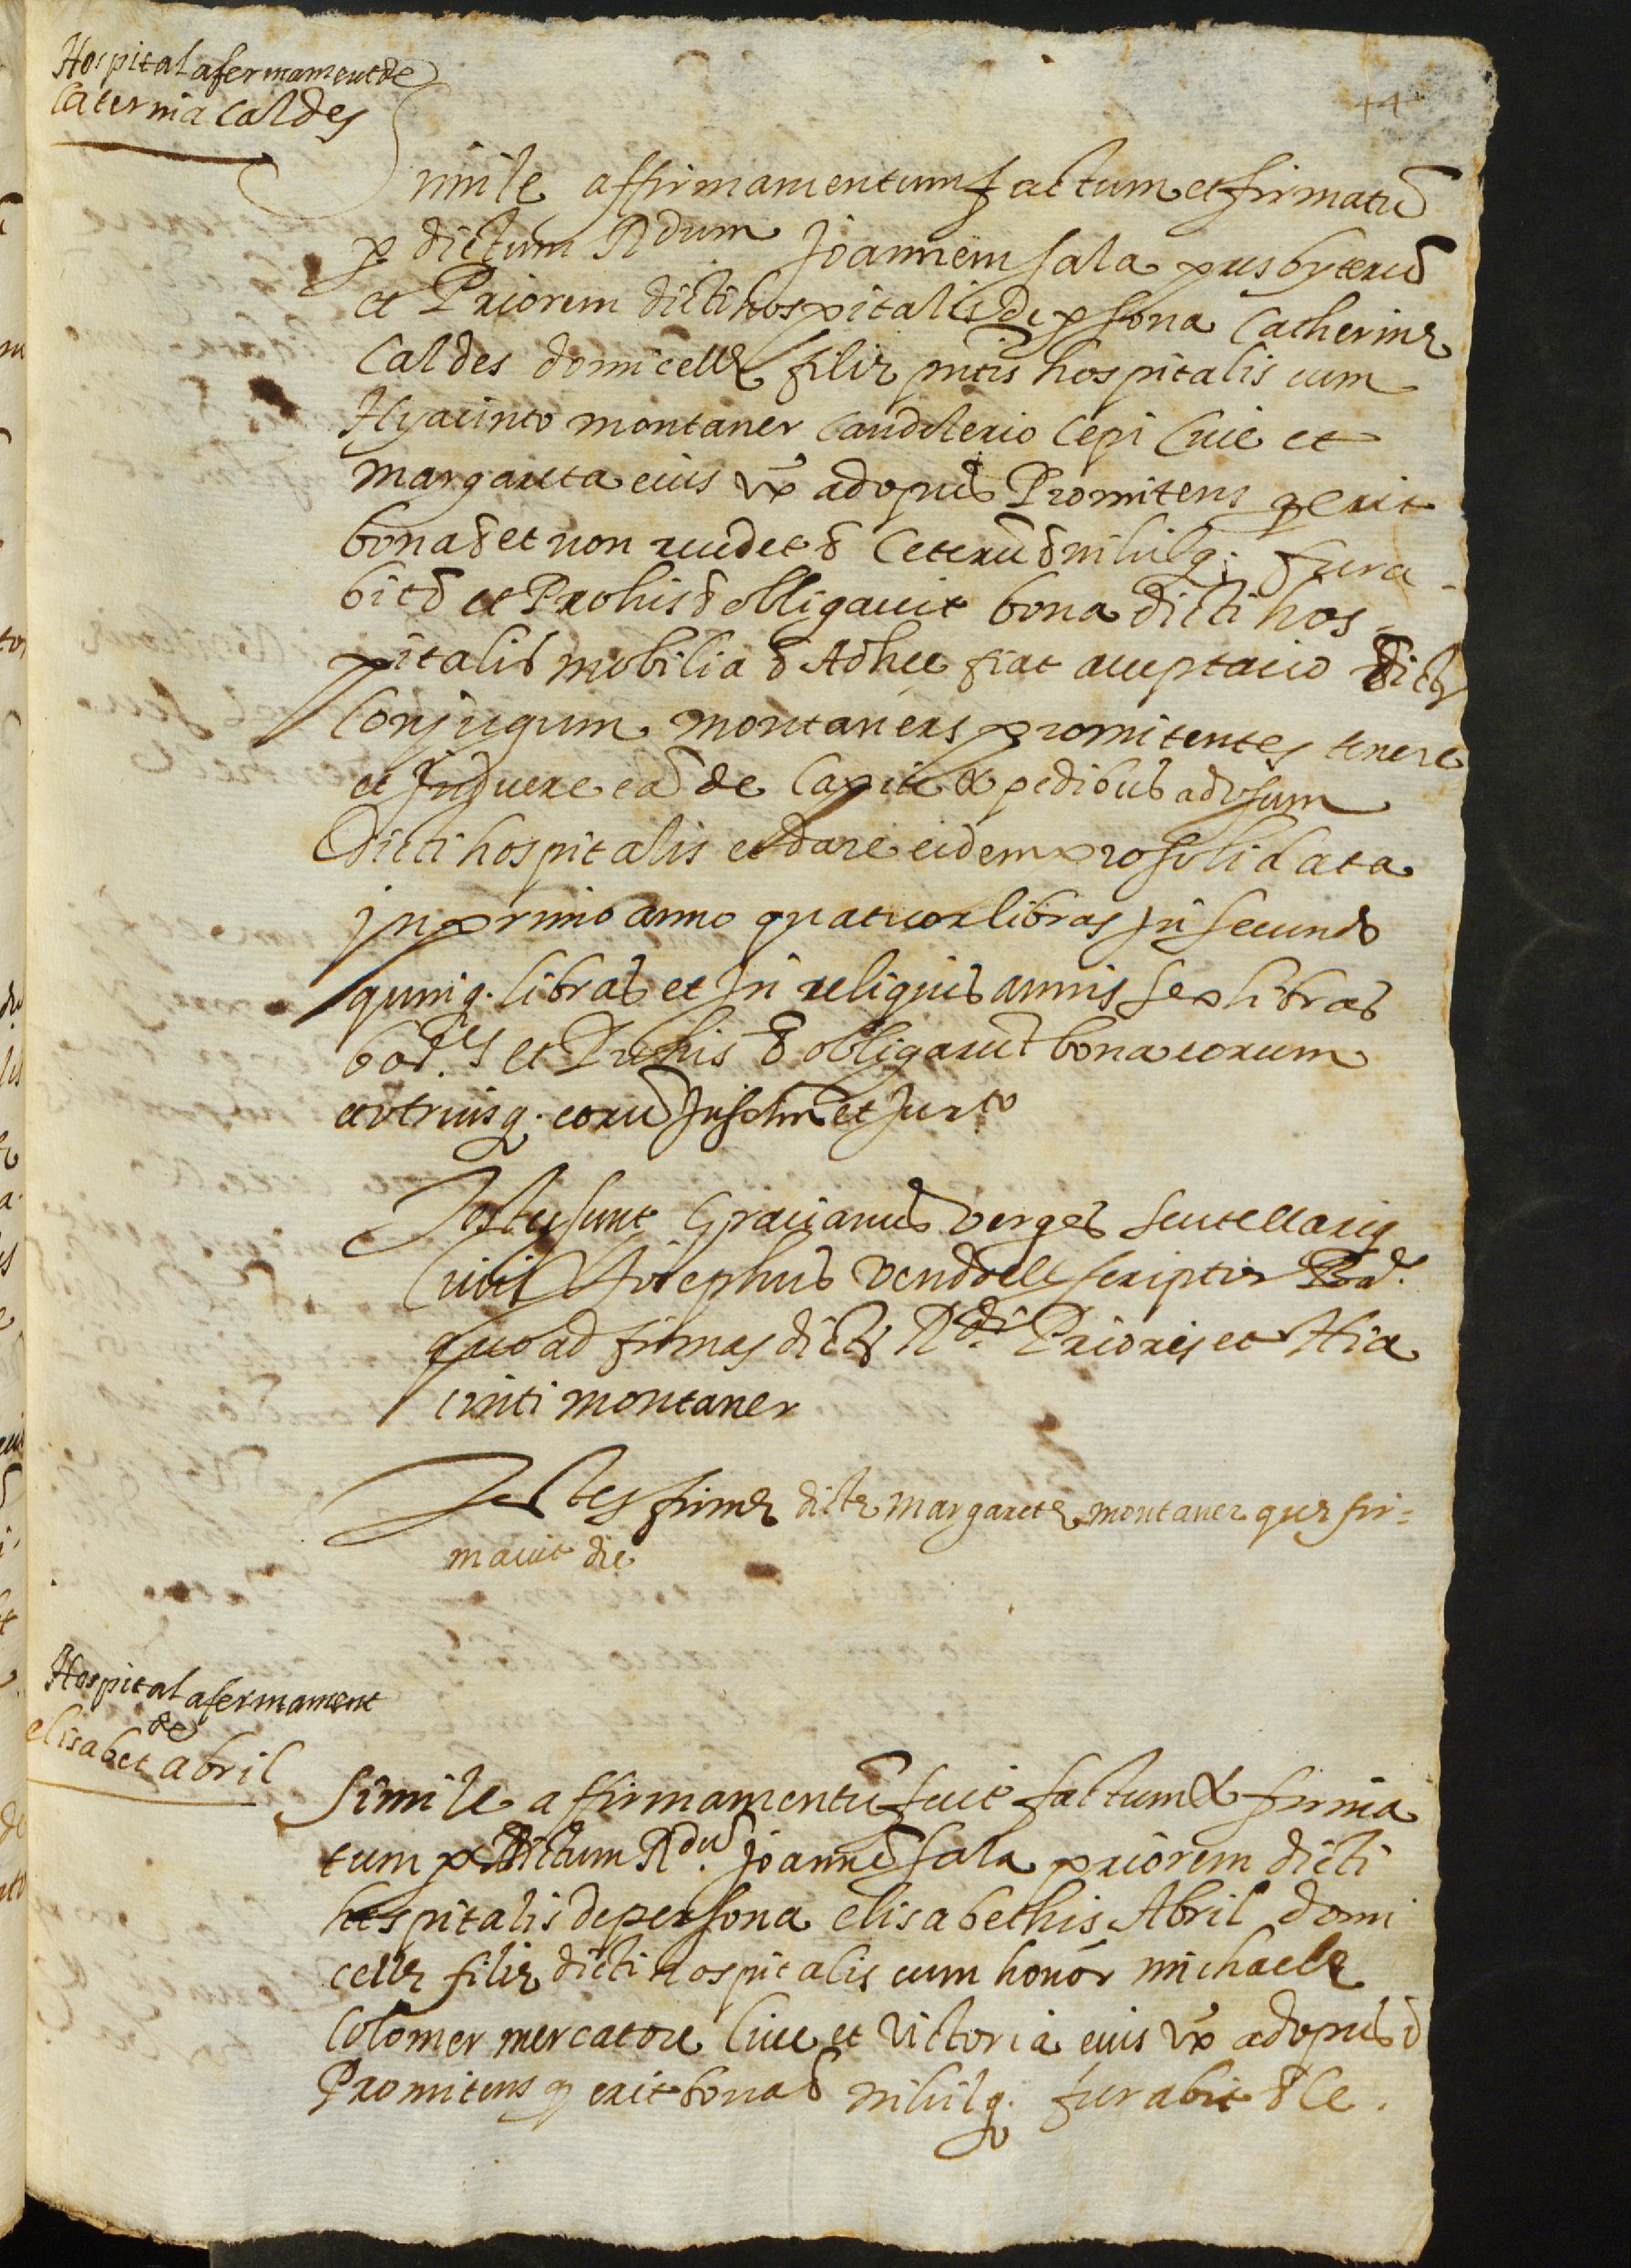 Hospital afermament de
Caterina Caldes
44
Simile affirmamentum factum et firmatū
p dictum R.dum Joannem sala presbyterū
et Priorem dicti hospitalis de psona Catherinę
Caldes domicellę filię pntis hospitalis cum
Hyacinto montaner Candelerio Cepi Cive et
margarita eius vx̄ ad opus Promitens q erit
bona & et non recedet & Ceterū & nihilq; fura
bit & et Pro his & obligavit bona dicti hos-
pitalis mobilia & Ad hec fiat acceptacio dictȝ
Conjugum montaners promitentes tenere
et Induere eā de Capite & pedibus ad vsum
Dicti hospitalis et dare eidem pro solidata
in primo anno quatuor libras in secundo
quinq. libras et in reliquis annis sex libras
et Pro his & obligarūt bona eorum
et vtriusq. eorū Insolm et Jur.to
Testes sunt Gracianus verges scutellariq
Civis & Josephus vendrell scriptor Bar.
quo ad firmas dictȝ R.di Prioris et Hia
cinti montaner
Testes firmę dictę margaretę montaner quę fir=
mavit die
Hospital afermament
de
elisabet abril
Simile affirmamentū fuit factum & firma
tum p dictum R.dū Joannē sala priorem dicti
hospitalis de persona elisabethis Abril domi
cellę filię dicti hospitalis cum honor michaele
Colomer mercatore Cive et victoria eius vx̄ ad opus &
Promitens q erit bona & nihilq. furabit & Ce.